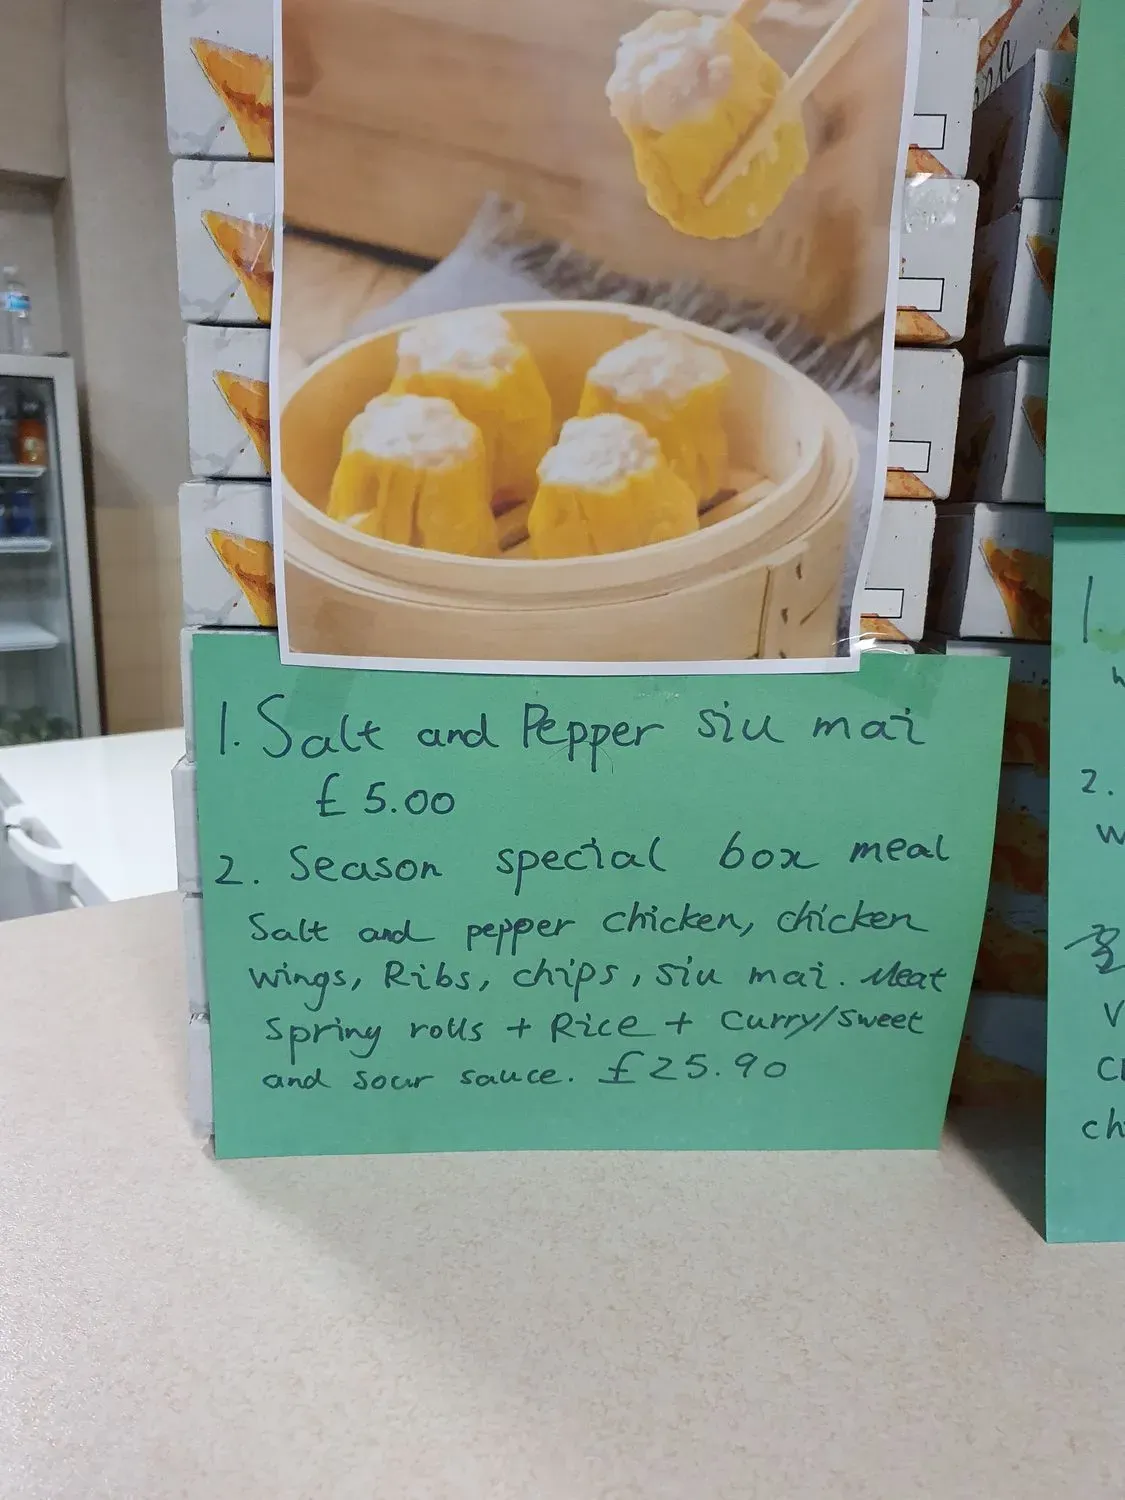 1. Salt and Pepper siu mai
£5.00
2. Season special box meal
Salt and pepper chicken, chicken
wings, Ribs, chips, siu mai. Meat
spring rolls + Rice + Curry/sweet
and sour sauce. £25.90
1
2.